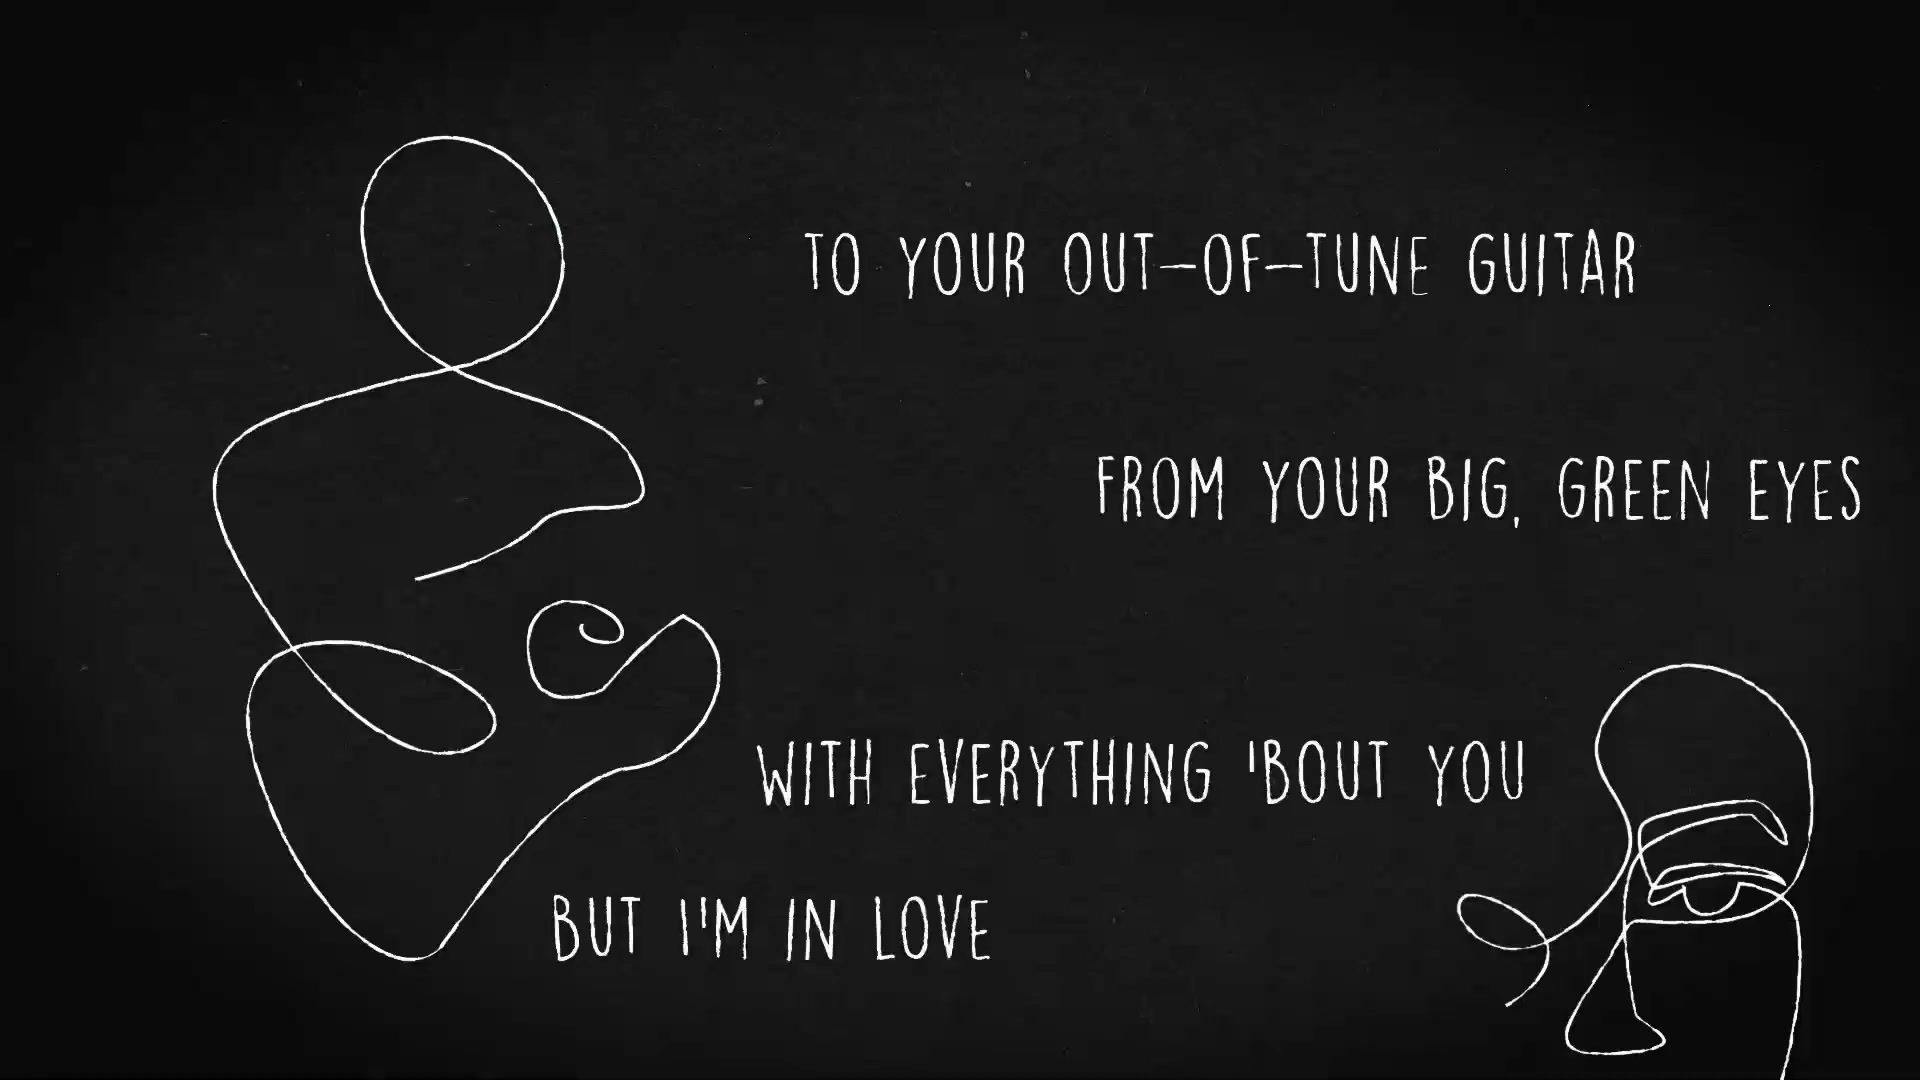 TO YOUR OUT-OF-TUNE GUITAR
FROM YOUR BIG, GREEN EYES
WITH EVERYTHING 'BOUT YOU
BUT I'M IN LOVE